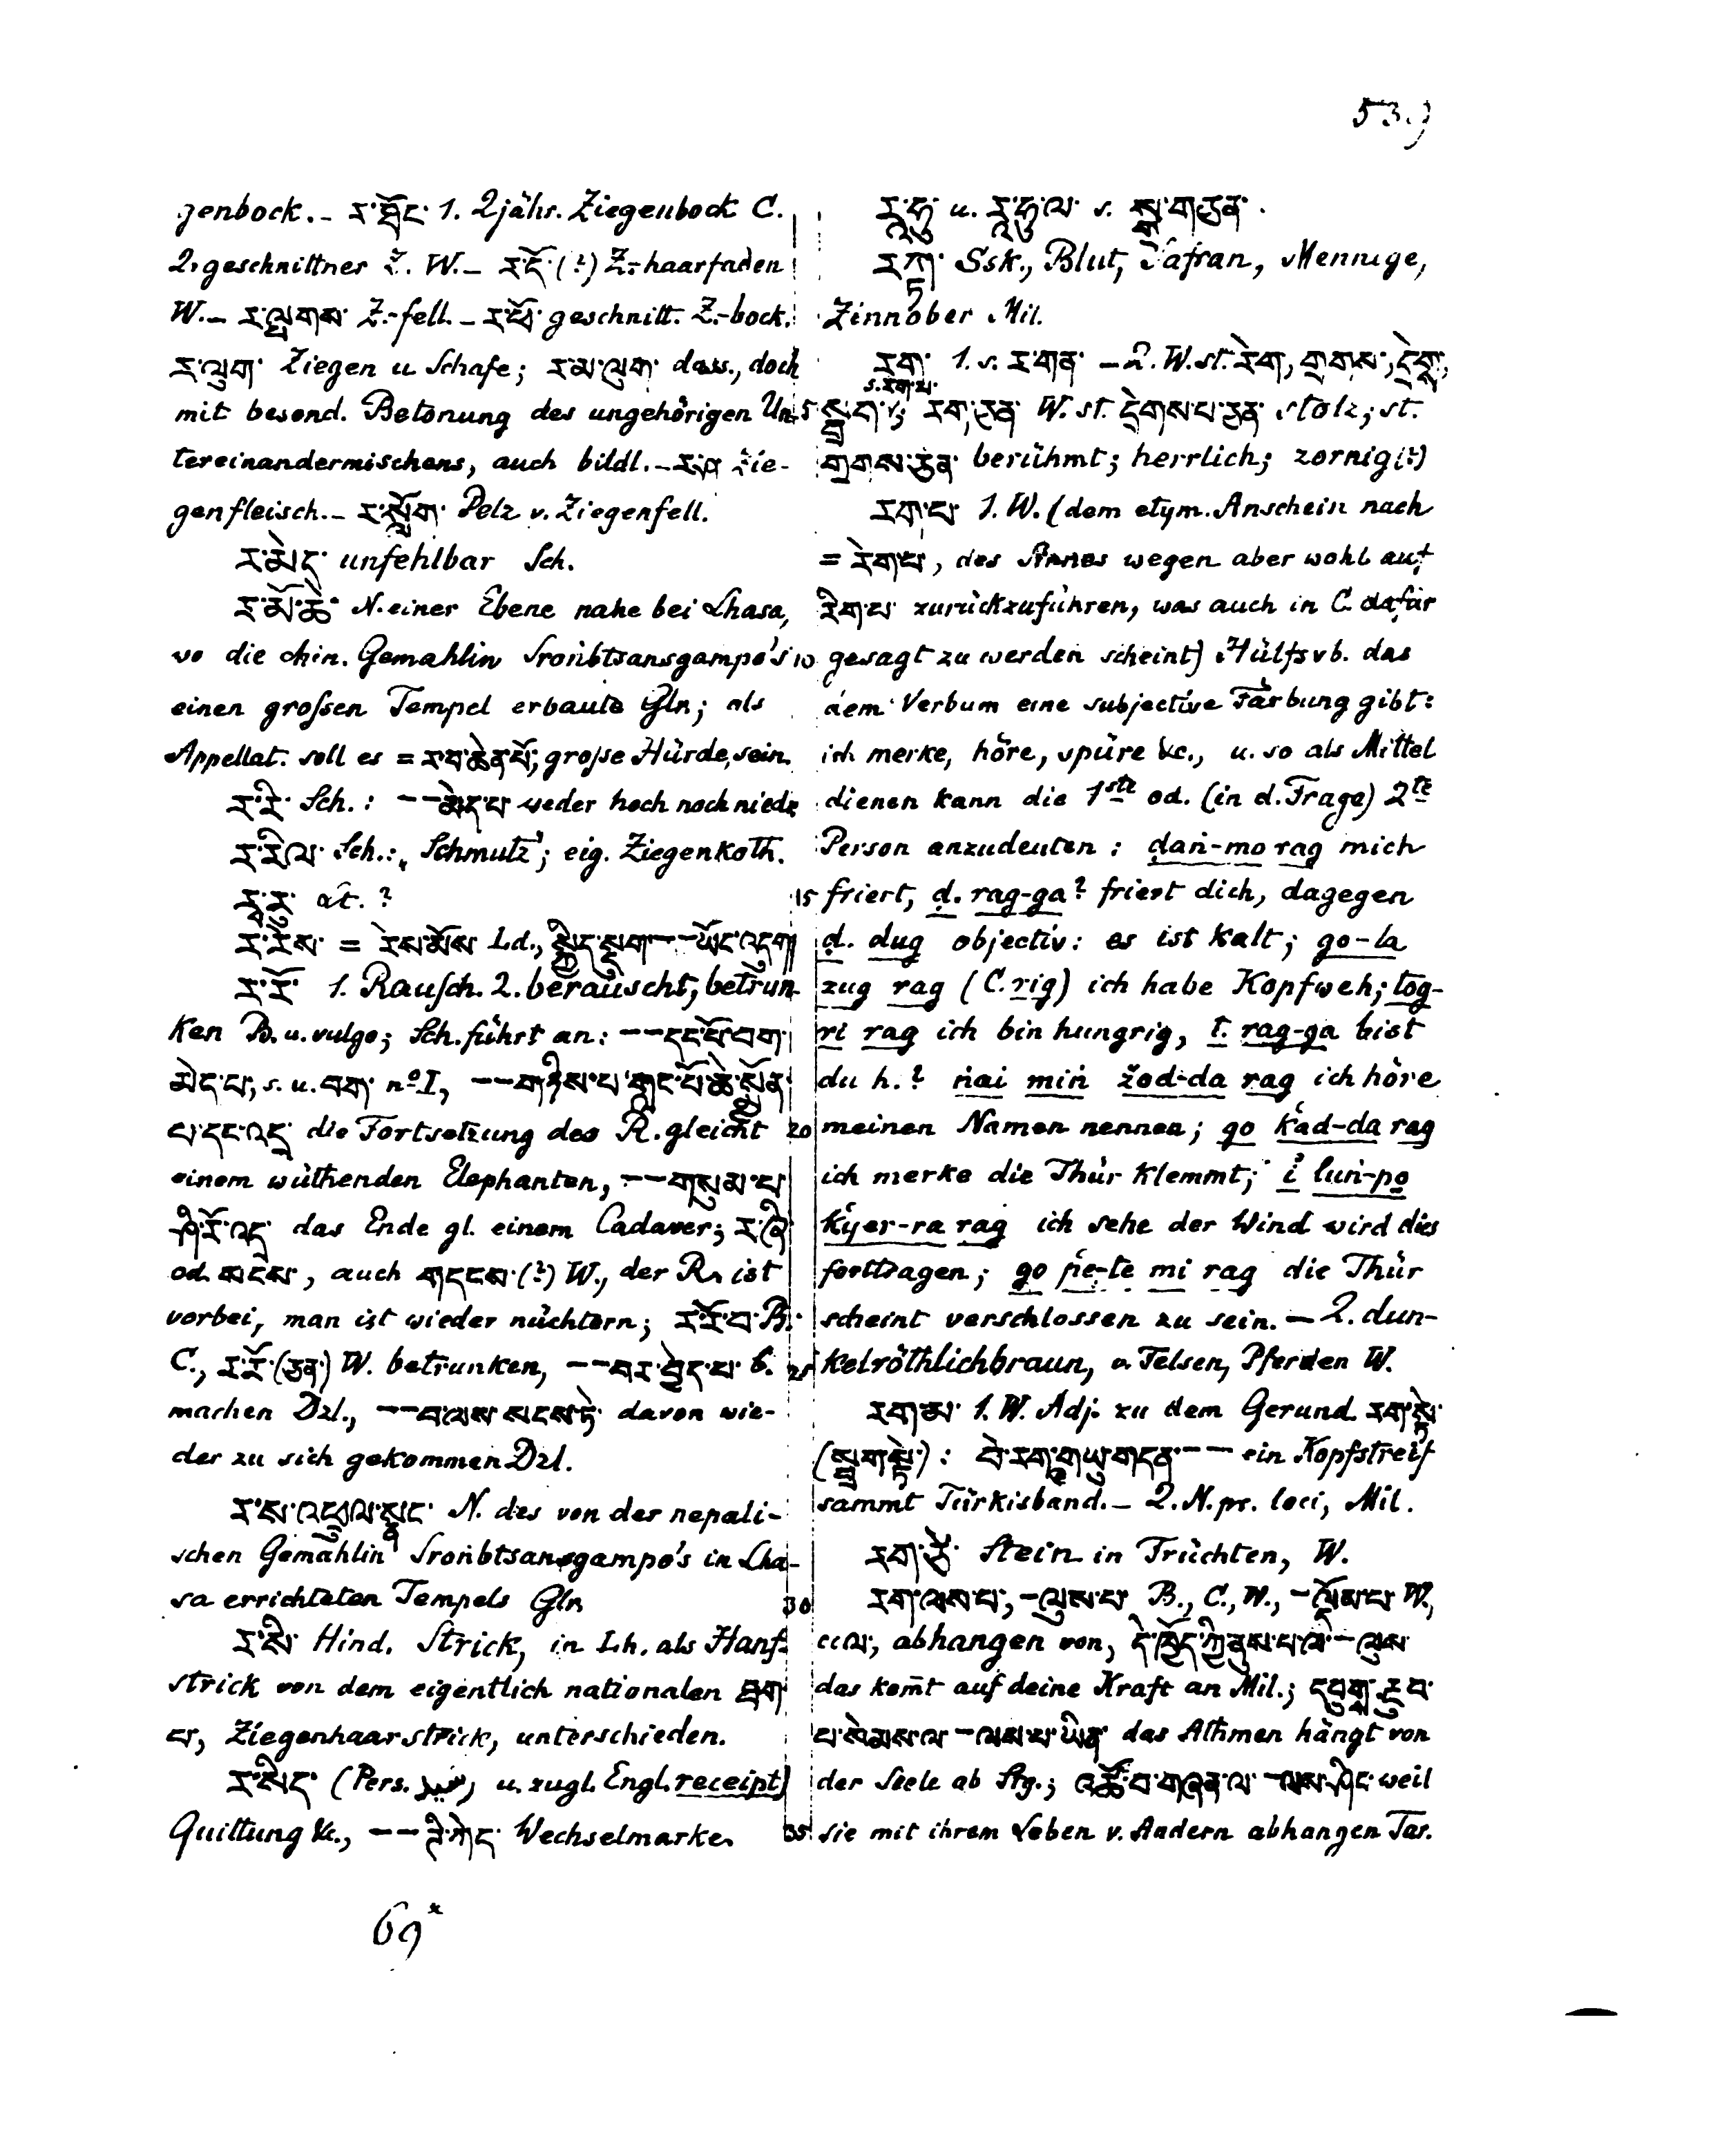 539
genbock. – ར་ཐོང་ 1. 2jähr. Ziegenbock C.
2. geschnittner Z. W. – ར་དོ་ (?) Z.-haarfaden
W. – ར་ལྤགས་ Z.-fell. – ར་ཕོ་ geschnitt. Z.-bock.
ར་ལུག་ Ziegen u Schafe; ར་མ་ལུག་ dass., doch
mit besond. Betonung des ungehörigen Un-
tereinandermischens, auch bildl. – ར་ཤ Zie-
genfleisch. – ར་སློག་ Pelz v. Ziegenfell.
ར་མེད་ unfehlbar Sch.
ར་མོ་ཆེ་ N. einer Ebene nahe bei Lhasa,
wo die chin. Gemahlin Sroṅbtsansgampo's
einen großen Tempel erbaute Glr; als
Appellat. soll es = ར་བ་ཆེན་པོ, große Hürde, sein.
ར་རི་ Sch.: –– མེད་པ weder hoch noch niedr
ར་རིལ་ Sch.: Schmutz; eig. Ziegenkoth.
ར་རུ་ ?
ར་རེས་ = རེས་མོས Ld.,
ར་རོ་ 1. Rausch. 2. berauscht, betrun-
ken B. u. vulgo; Sch. führt an: –– དང་པོ་བག་
མེད་པ, s. u. བག་ nº I, –– གཉིས་པ་གླང་པོ་ཆེ་སྨྱོན་
པ་དང་འདྲ die Fortsetzung des R. gleicht
einem wüthenden Elephanten, –– གསུམ་པ
ཤི་རོ་འདྲ das Ende gl. einem Cadaver; ར་ཞི
od. སངས, auch གདངས་ (?) W., der R. ist
vorbei, man ist wieder nüchtern; ར་རོ་བ་ B.
C., ར་རོ་ (ཅན་) W. betrunken, –– བར་བྱེད་པ་ b.
machen Dzl., –– བ་ལས་སངས་ཏེ་ davon wie-
der zu sich gekommen Dzl.
ར་ས་འཕྲུལ་སྣང་ N. des von der nepali-
schen Gemahlin Sroṅbtsansgampo's in Lha-
sa errichteten Tempels Glr
ར་སི་ Hind. Strick, in Lh. als Hanf-
strick von dem eigentlich nationalen ཐག་
པ, Ziegenhaarstrick, unterschieden.
ར་སིད་ (Pers. رسید u. zugl. Engl. receipt)
Quittung &c., –– Wechselmarke.
69*
ར་ཧུ་ u. ར་ཧུ་ལ་ s. སྒྲ་གཅན་.
རཀྟ་ Ssk., Blut, Safran, Mennige,
Zinnober Mil.
རག་ 1. s. ར་གན་ – 2. W. st. རེག, གྲགས,
5 རག་ཅན་ W. st. དྲེགས་པ་ཅན་ stolz; st.
གྲགས་ཅན་ berühmt; herrlich; zornig (?)
རག་པ་ 1. W. (dem etym. Anschein nach
= རེག་པ, des Sinnes wegen aber wohl auf
རིག་པ zurückzuführen, was auch in C. dafür
10 gesagt zu werden scheint) Hülfsvb. das
dem Verbum eine subjective Färbung gibt:
ich merke, höre, spüre &c., u. so als Mittel
dienen kann die 1ste od. (in d. Frage) 2te
Person anzudeuten: ḍaṅ-mo rag mich
15 friert, ḍ. rag-ga? friert dich, dagegen
ḍ. dug objectiv: es ist kalt; go-la
zug rag (C. rig) ich habe Kopfweh; ltog-
ri rag ich bin hungrig, l. rag-ga bist
du h.? ṅai miṅ žod-da rag ich höre
20 meinen Namen nennen; go k̔ad-da rag
ich merke die Thür klemmt; i luṅ-po
k̔yer-ra rag ich sehe der Wind wird dies
forttragen; go p̔e-te mi rag die Thür
scheint verschlossen zu sein. – 2. dun-
25 kelröthlichbraun, v. Felsen, Pferden W.
རག་མ་ 1. W. Adj. zu dem Gerund. རག་སྟེ་
: པེ་རག་གཡུ་གདན་ –– ein Kopfstreif
sammt Türkisband. – 2. N. pr. loci, Mil.
རག་རྩེ་ Stein in Früchten, W.
30 རག་ལས་པ, – ལུས་པ་ B., C., W., – ལོམ་པ W.,
c. c. ལ, abhangen von, དེ་ཁྱོད་ཀྱི་ནུས་པ་ལ – ལུས
das kom̄t auf deine Kraft an Mil.; དབུགས་རྔུབ་
པ་སེམས་ལ – ལས་པ་ཡིན das Athmen hängt von
der Seele ab Stg.; འཚོ་བ་གཞན་ལ – ལས་ཤིང weil
35 sie mit ihrem Leben v. Andern abhangen Tar.